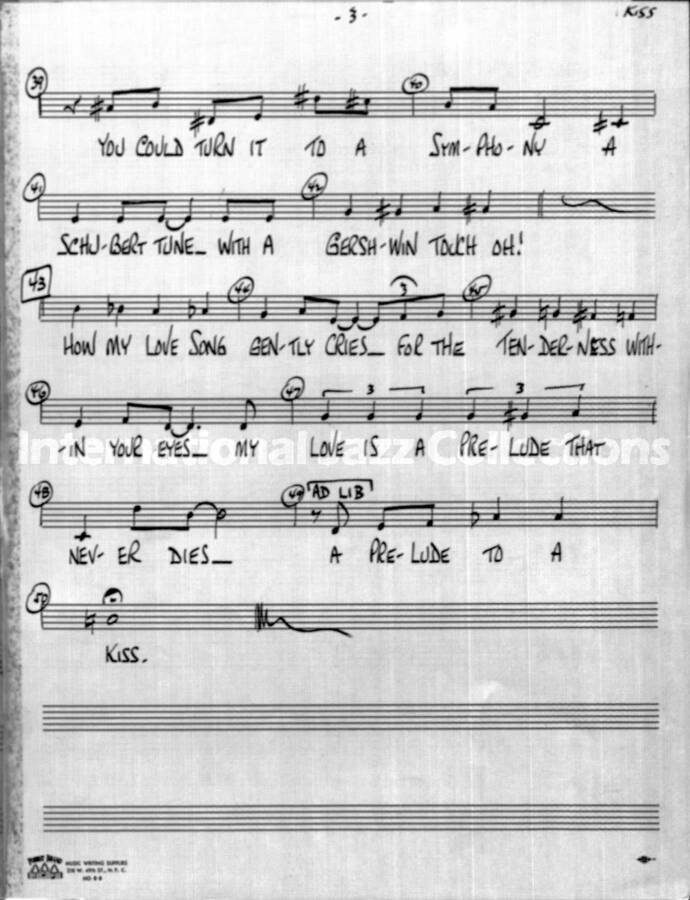 - 3 -
KISS
39 40
YOU COULD TURN IT TO A SYM-PHO-NY A
41 42
SCHU-BERT TUNE_ WITH A GERSH-WIN TOUCH OH!
43 44 3 45
HOW MY LOVE SONG GEN-TLY CRIES_ FOR THE TEN-DER-NESS WITH-
46 47 3 3
-IN YOUR EYES_ MY LOVE IS A PRE-LUDE THAT
International Jazz Collections
48 49 AD LIB
NEV-ER DIES_ A PRE-LUDE TO A
50
KISS.
MUSIC WRITING SUPPLIES